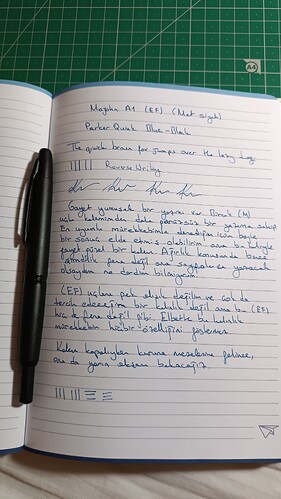 A4
Majohn A1 (EF) (Mat siyah)
Parker Quink Blue-Black
The quick brown fox jumps over the lazy dog
Reverse Writing
Gayet yumuşak bir yazımı var. Bircok (M)
uçlu kalemimden daha pürüzsüz bir yazıma sahip
En uyumlu mürekkebimle denediğim için böyle
bir sonuç elde etmiş olabilirim ama bu haliyle
gayet güzel bir kalem. Ağırlık konusunda bence
şimdilik fena değil ama sayfalarca yazacak
olsaydım ne derdim bilmiyorum
(EF) uçlara pek alışık değilim ve çok da
tercih edeceğim bir şekil değil ama bu (EF)
hiç de fena değil gibi. Elbette bu kalınlık
mürekkebin hiçbir özelliğini göstermez
Kalem kapalıyken kuruma meselesine gelince,
ona da yarın akşam bakacağız.